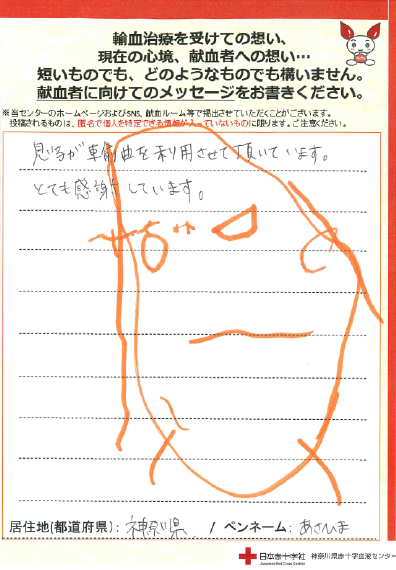 輸血治療を受けての想い、
現在の心境、献血者への想い…
短いものでも、どのようなものでも構いません。
献血者に向けてのメッセージをお書きください。
※当センターのホームページおよびSNS、献血ルーム等で掲出させていただくことがございます。
投稿されるものは、匿名で個人を特定できる情報が入っていないものに限ります。ご注意ください。
息子が輸血を利用させて頂いています。
とても感謝しています。
居住地(都道府県)：神奈川県 / ペンネーム：あさひま
日本赤十字社 神奈川県赤十字血液センター
Japanese Red Cross Society